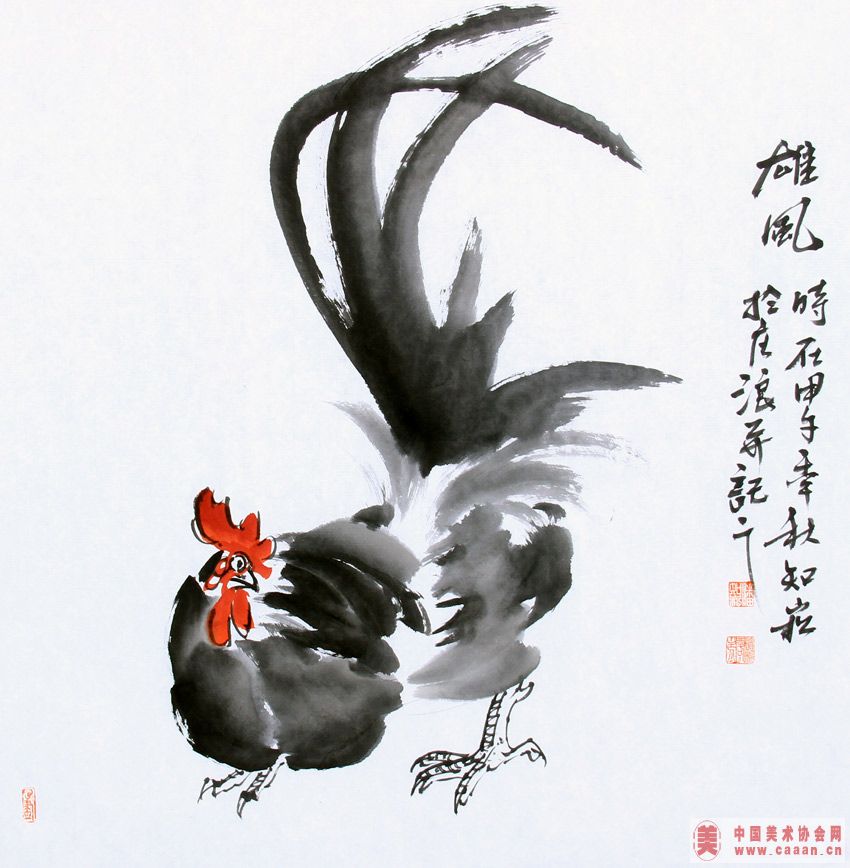 雄風
時在甲午季秋知崧
於庄浪并記之
美
中国美术协会网
www.caaan.cn